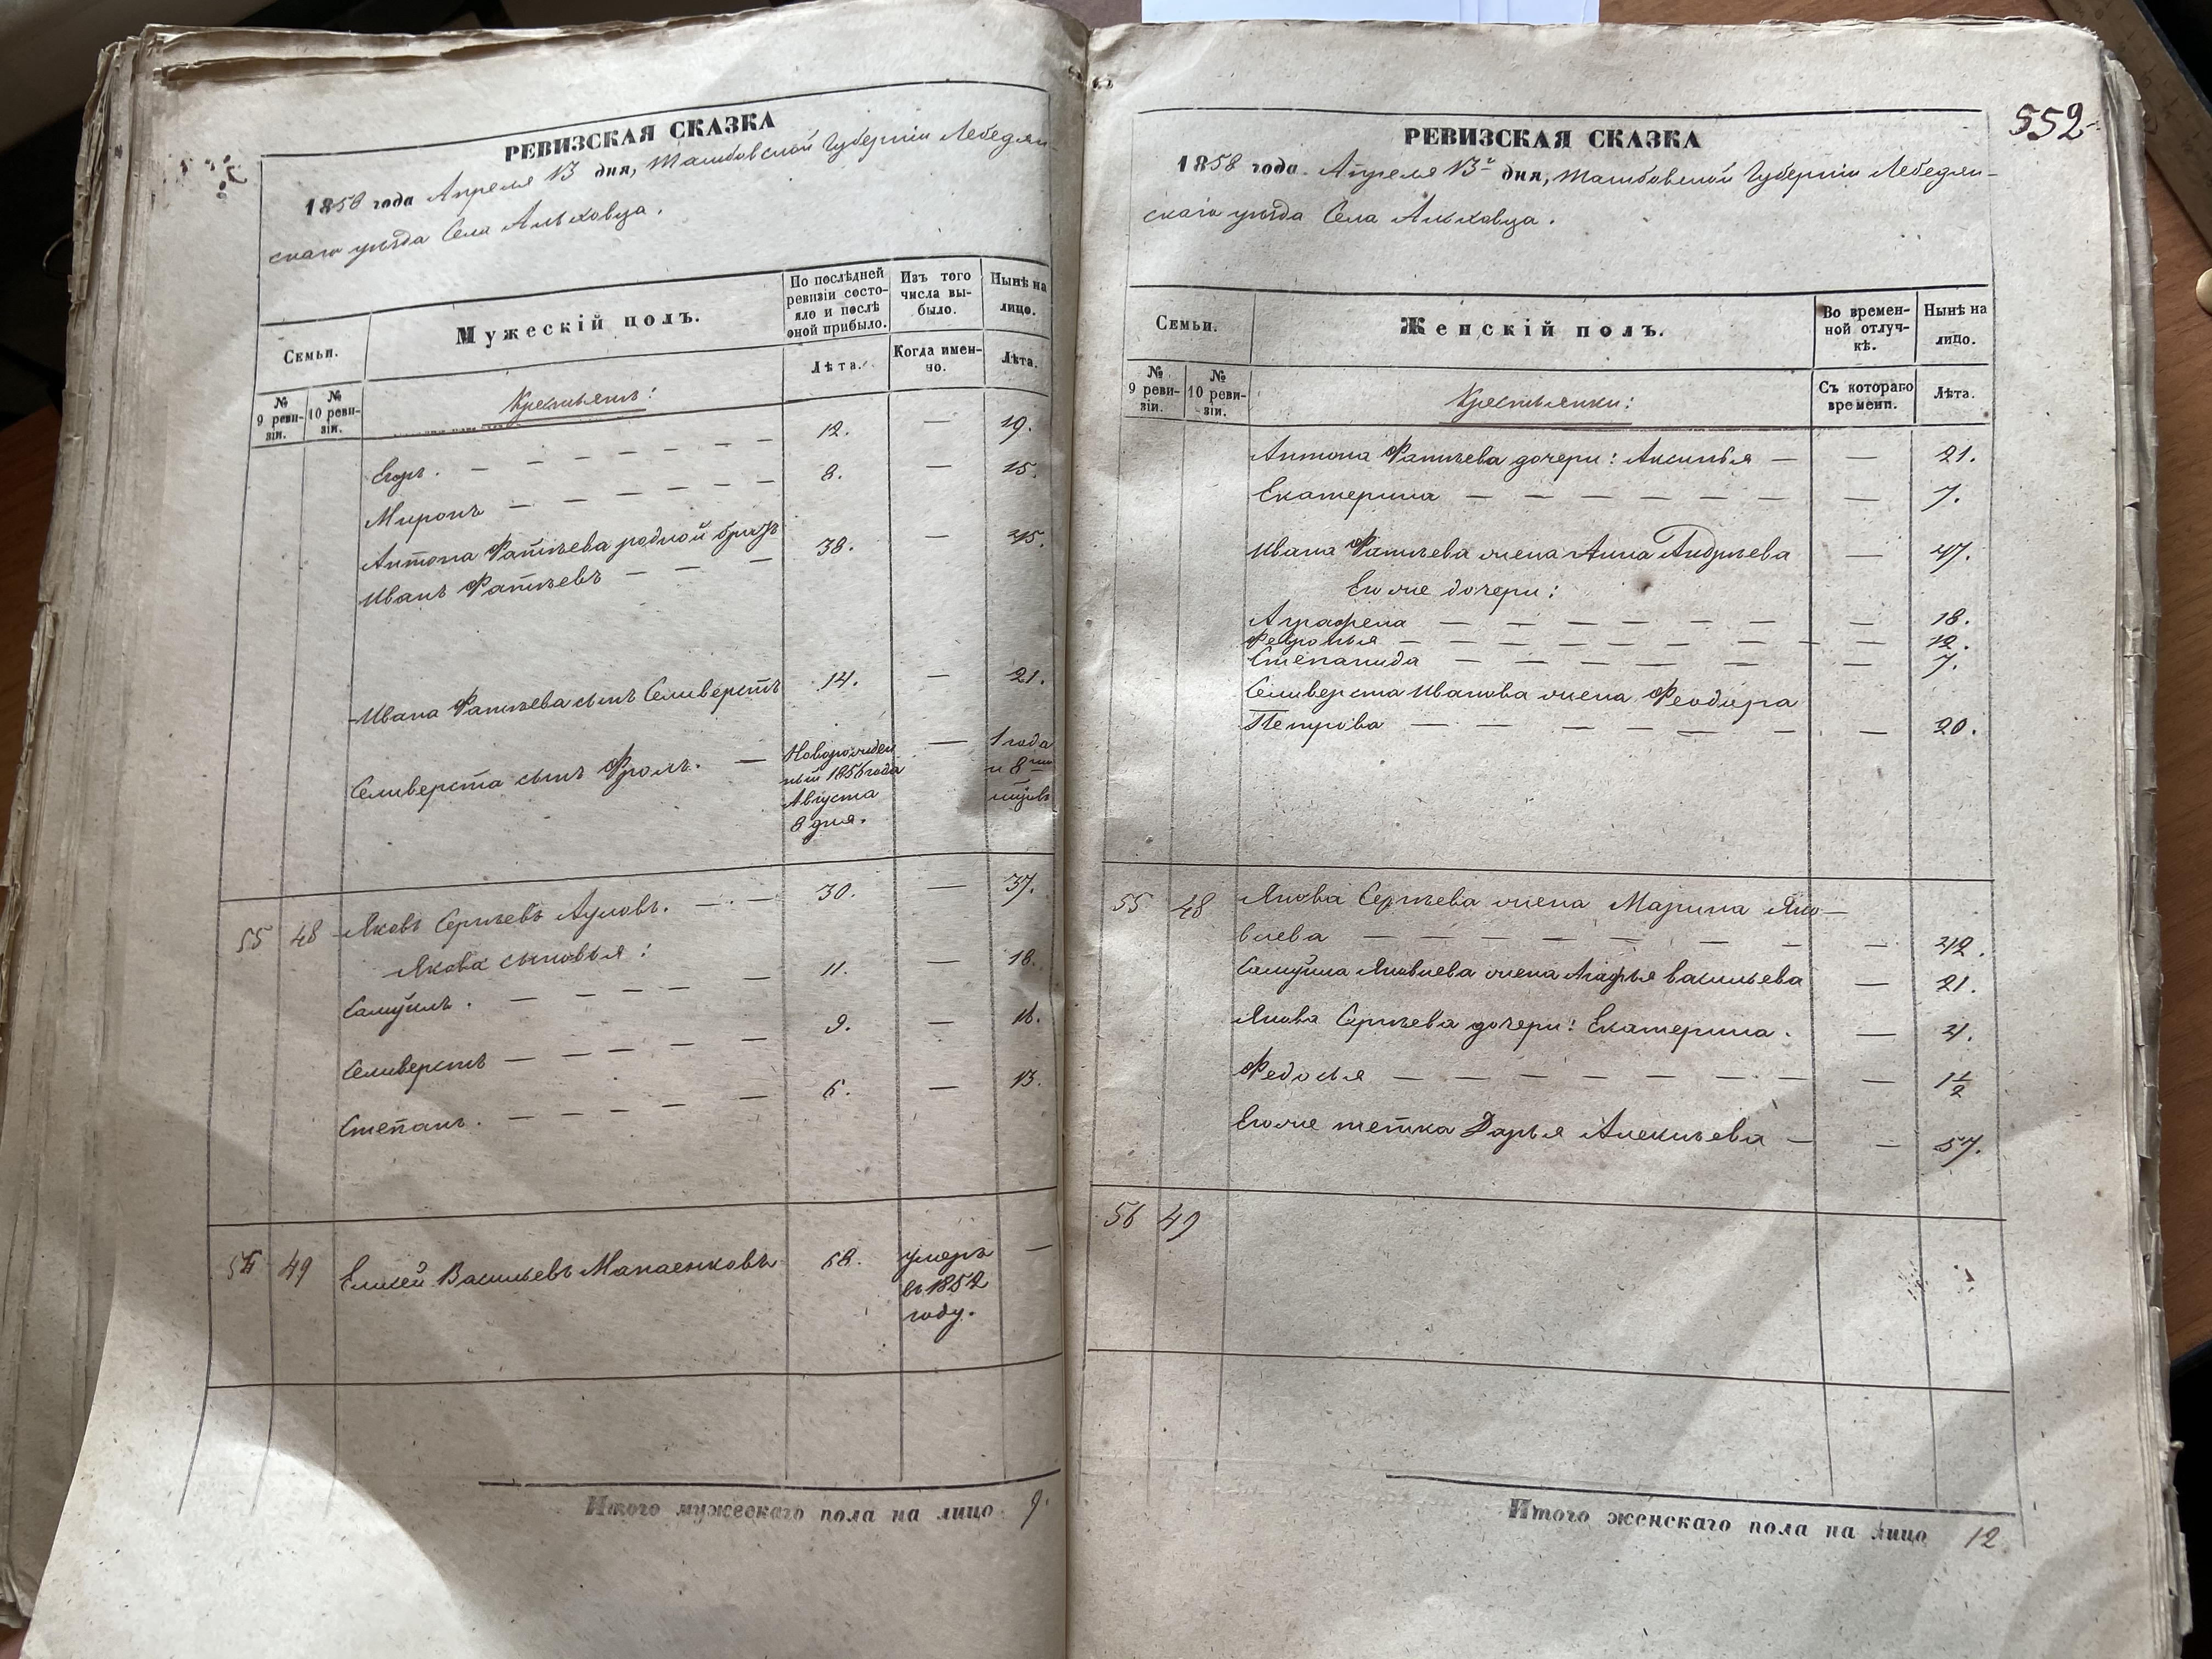 РЕВИЗСКАЯ СКАЗКА
1858 года Апреля 13 дня, Тамбовской Губерніи Лебедян-
скаго уѣзда Села Альховца.
Семьи.
Мужескій полъ.
По послѣдней ревизіи состо-
яло и послѣ оной прибыло.
Изъ того числа вы-
было.
Нынѣ на лицо.
№ 9 реви-
зіи.
№ 10 реви-
зіи.
Лѣта.
Когда имен-
но.
Лѣта.
Крестьяне:
Егоръ. 12. — 19.
Миронъ 8. — 15.
Антона Фатѣева родной братъ
Иванъ Фатѣевъ 38. — 45.
Ивана Фатѣева сынъ Селиверстъ 14. — 21.
Селиверста сынъ Фролъ. — Новорожден
ный 1856 года
Августа
8 дня. — 1 года
и 8
55 48 Яковъ Сергѣевъ Ауловъ. 30. — 37.
Якова сыновья:
Самуилъ. 11. — 18.
Селиверстъ 9. — 16.
Степанъ. 6. — 13.
56 49 Елисей Васильевъ Мапаенковъ 68. умеръ —
въ 1852
году.
Итого мужескаго пола на лицо 9.
552
РЕВИЗСКАЯ СКАЗКА
1858 года Апреля 13 дня, Тамбовской Губерніи Лебедян-
скаго уѣзда Села Альховца.
Семьи.
Женскій полъ.
Во времен-
ной отлуч-
кѣ.
Нынѣ на лицо.
№ 9 реви-
зіи.
№ 10 реви-
зіи.
Съ котораго времени.
Лѣта.
Крестьянки:
Антона Фатѣева дочери: Аксинья — — 21.
Екатерина — 7.
Ивана Фатѣева жена Анна Андрѣева — 47.
Его же дочери:
Аграфена — 18.
Февронья — 12.
Степанида — 7.
Селиверста Иванова жена Феодора
Петрова — 20.
55 48 Якова Сергѣева жена Марина Яко-
влева — 42.
Самуила Яковлева жена Агафья Васильева — 21.
Якова Сергѣева дочери: Екатерина. — 4.
Федосья — 1½
Его же тетка Дарья Алексѣева — — 57.
56 49
Итого женскаго пола на лицо 12